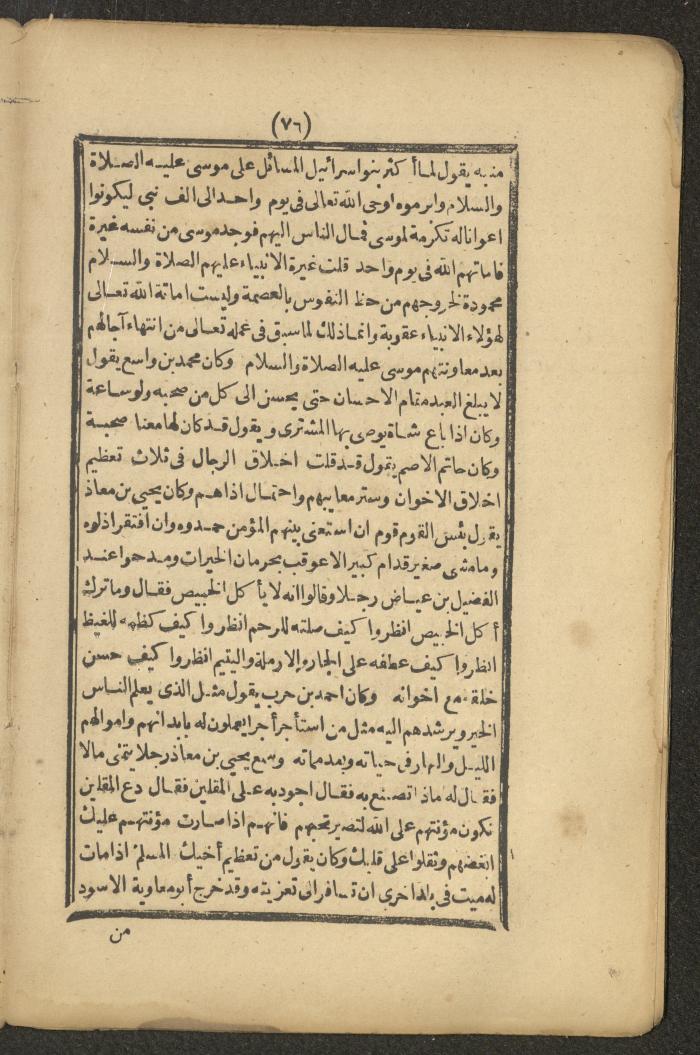 (٧٦)
منبه يقول لما أكثر بنو اسرائيل المسائل على موسى عليه الصلاة
والسلام وابرموه اوحى الله تعالى فى يوم واحد الى الف نبى ليكونوا
اعوانا له تكرمة لموسى فمال الناس اليهم فوجد موسى من نفسه غيرة
فاماتهم الله فى يوم واحد قلت غيرة الانبياء عليهم الصلاة والسلام
محمودة لخروجهم من حظ النفوس بالعصمة وليست اماتة الله تعالى
لهؤلاء الانبياء عقوبة وانما ذلك لما سبق فى علمه تعالى من انتهاء آجالهم
بعد معاونتهم موسى عليه الصلاة والسلام وكان محمد بن واسع يقول
لا يبلغ العبد مقام الاحسان حتى يحسن الى كل من صحبه ولو ساعة
وكان اذا باع شاة يوصى بها المشترى ويقول قد كان لها معنا صحبة
وكان حاتم الاصم يقول قد قلت اخلاق الرجال فى ثلاث تعظيم
اخلاق الاخوان وستر معايبهم واحتمال اذاهم وكان يحيى بن معاذ
يقول بئس القوم قوم ان استغنى بينهم المؤمن حمدوه وان افتقر اذلوه
وما مشى صغير قدام كبير الا عوقب بحرمان الخيرات ومدحوا عند
الفضيل بن عياض رجلا وقالوا انه لا يأكل الخبيص فقال وما ترك
أكل الخبيص انظروا كيف صلته للرحم انظروا كيف كظمه للغيظ
انظروا كيف عطفه على الجار والارملة واليتيم انظروا كيف حسن
خلقه مع اخوانه وكان احمد بن حرب يقول مثل الذى يعلم الناس
الخير ويرشدهم اليه مثل من استأجر أجرا يعملون له بابدانهم واموالهم
الليل والنهار فى حياته وبعد مماته وسمع يحيى بن معاذ رجلا يتمنى مالا
فقال له ماذا تصنع به فقال اجود به على المقلين فقال دع المقلين
تكون مؤنتهم على الله لتصير تحبهم فانهم اذا صارت مؤنتهم عليك
ابغضهم وثقلوا على قلبك وكان يقول من تعظيم أخيك المسلم اذا مات
له ميت فى بلد اخرى ان تسافر الى تعزيته وقد خرج أبو معاوية الاسود
من